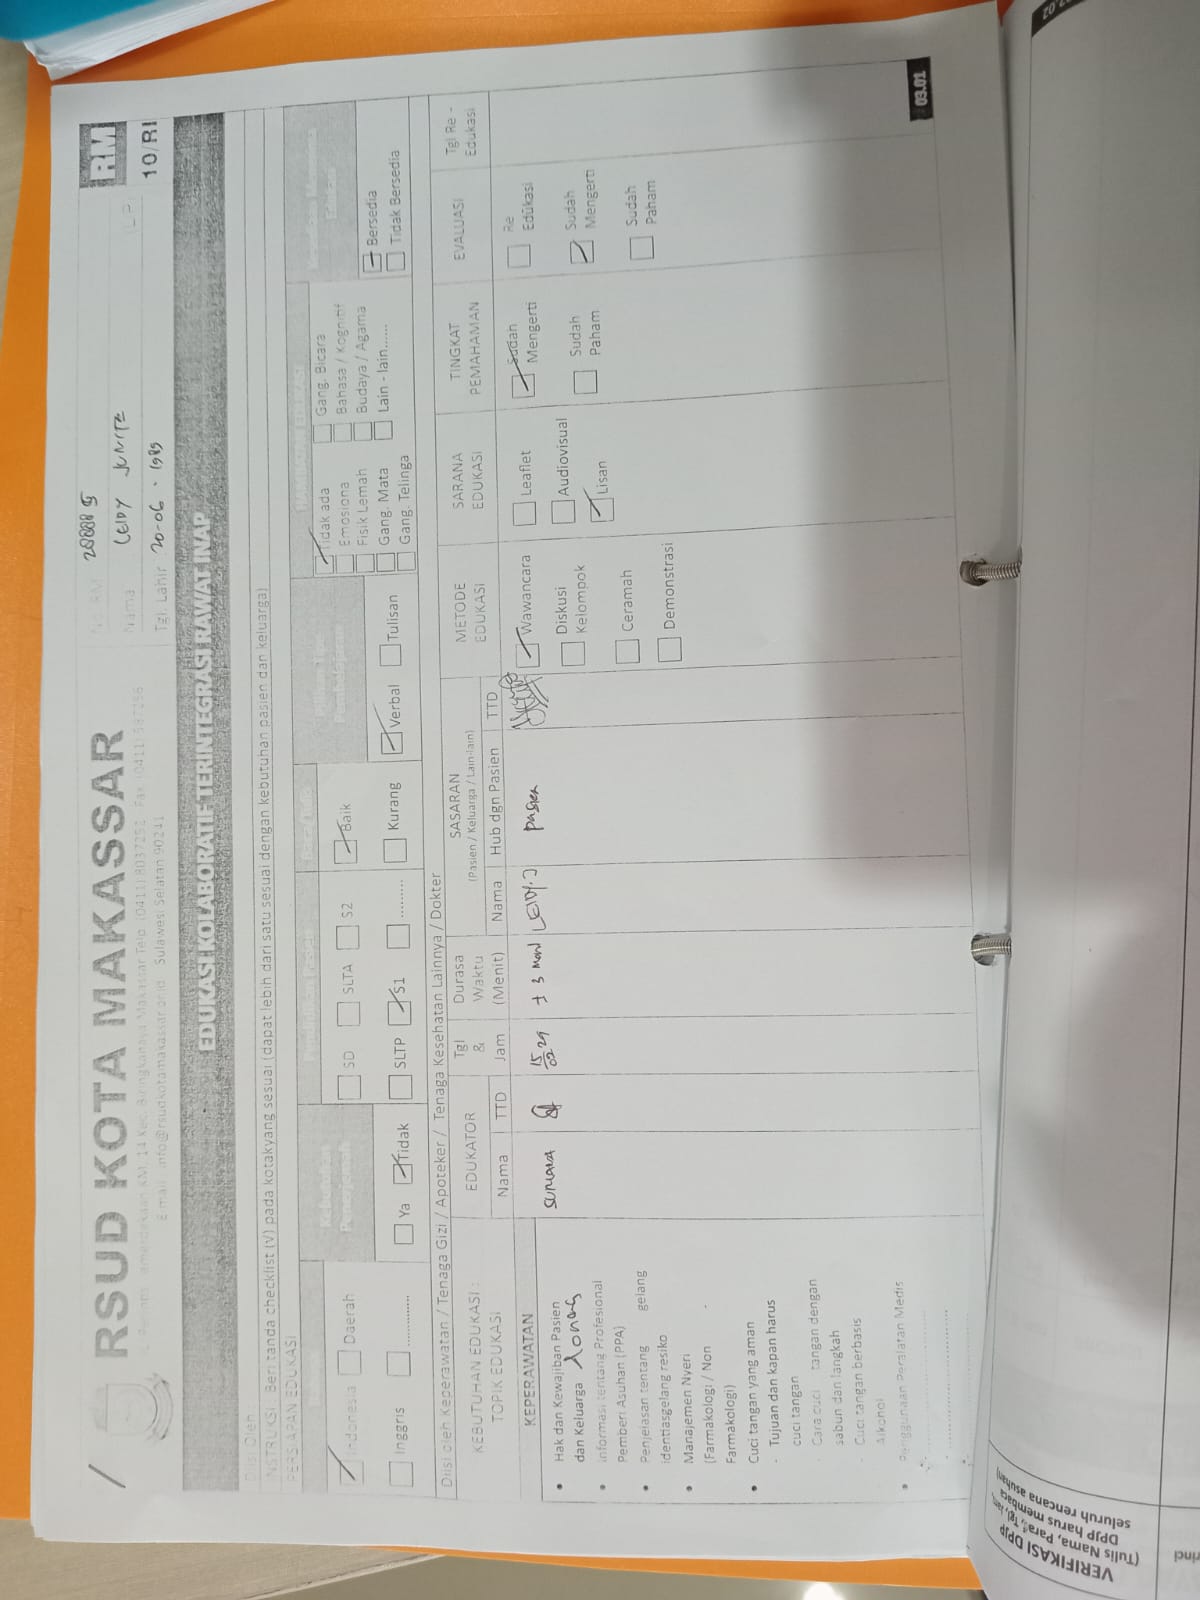 RSUD KOTA MAKASSAR
RM
10/RI
Sulawesi Selatan 90241
Nama LEIDY JUNITE
Tgl. Lahir 20-06-1989
EDUKASI KOLABORATIF TERINTEGRASI RAWAT INAP
Diisi Oleh
INSTRUKSI Beri tanda checklist (V) pada kotakyang sesuai (dapat lebih dari satu sesuai dengan kebutuhan pasien dan keluarga)
PERSIAPAN EDUKASI
Indonesia
Daerah
Inggris
............
Ya
Tidak
SD
SLTA
S2
SLTP
S1
.........
Baik
Kurang
Verbal
Tulisan
Tidak ada
Emosiona
Fisik Lemah
Gang. Mata
Gang. Telinga
Gang. Bicara
Bahasa / Kognitif
Budaya / Agama
Lain - lain......
Bersedia
Tidak Bersedia
Diisi oleh Keperawatan / Tenaga Gizi / Apoteker / Tenaga Kesehatan Lainnya / Dokter
KEBUTUHAN EDUKASI :
TOPIK EDUKASI
EDUKATOR
Nama
TTD
Tgl
&
Jam
Durasa
Waktu
(Menit)
SASARAN
(Pasien / Keluarga / Lain-lain)
Nama
Hub dgn Pasien
TTD
METODE
EDUKASI
SARANA
EDUKASI
TINGKAT
PEMAHAMAN
EVALUASI
Tgl Re -
Edukasi
KEPERAWATAN
• Hak dan Kewajiban Pasien
dan Keluarga
• Informasi tentang Profesional
Pemberi Asuhan (PPA)
• Penjelasan tentang gelang
identiasgelang resiko
• Manajemen Nyeri
(Farmakologi / Non -
Farmakologi)
• Cuci tangan yang aman
- Tujuan dan kapan harus
cuci tangan
- Cara cuci tangan dengan
sabun dan langkah
- Cuci tangan berbasis
Alkohol
• Penggunaan Peralatan Medis
15/02 24
± 3 men
LEIDY.J
pasien
Wawancara
Diskusi
Kelompok
Ceramah
Demonstrasi
Leaflet
Audiovisual
Lisan
Sudah
Mengerti
Sudah
Paham
Re
Edukasi
Sudah
Mengerti
Sudah
Paham
03.01
VERIFIKASI DPJP
(Tulis Nama, Paraf, Tgl, Jam,
DPJP harus membaca
seluruh rencana asuhan)